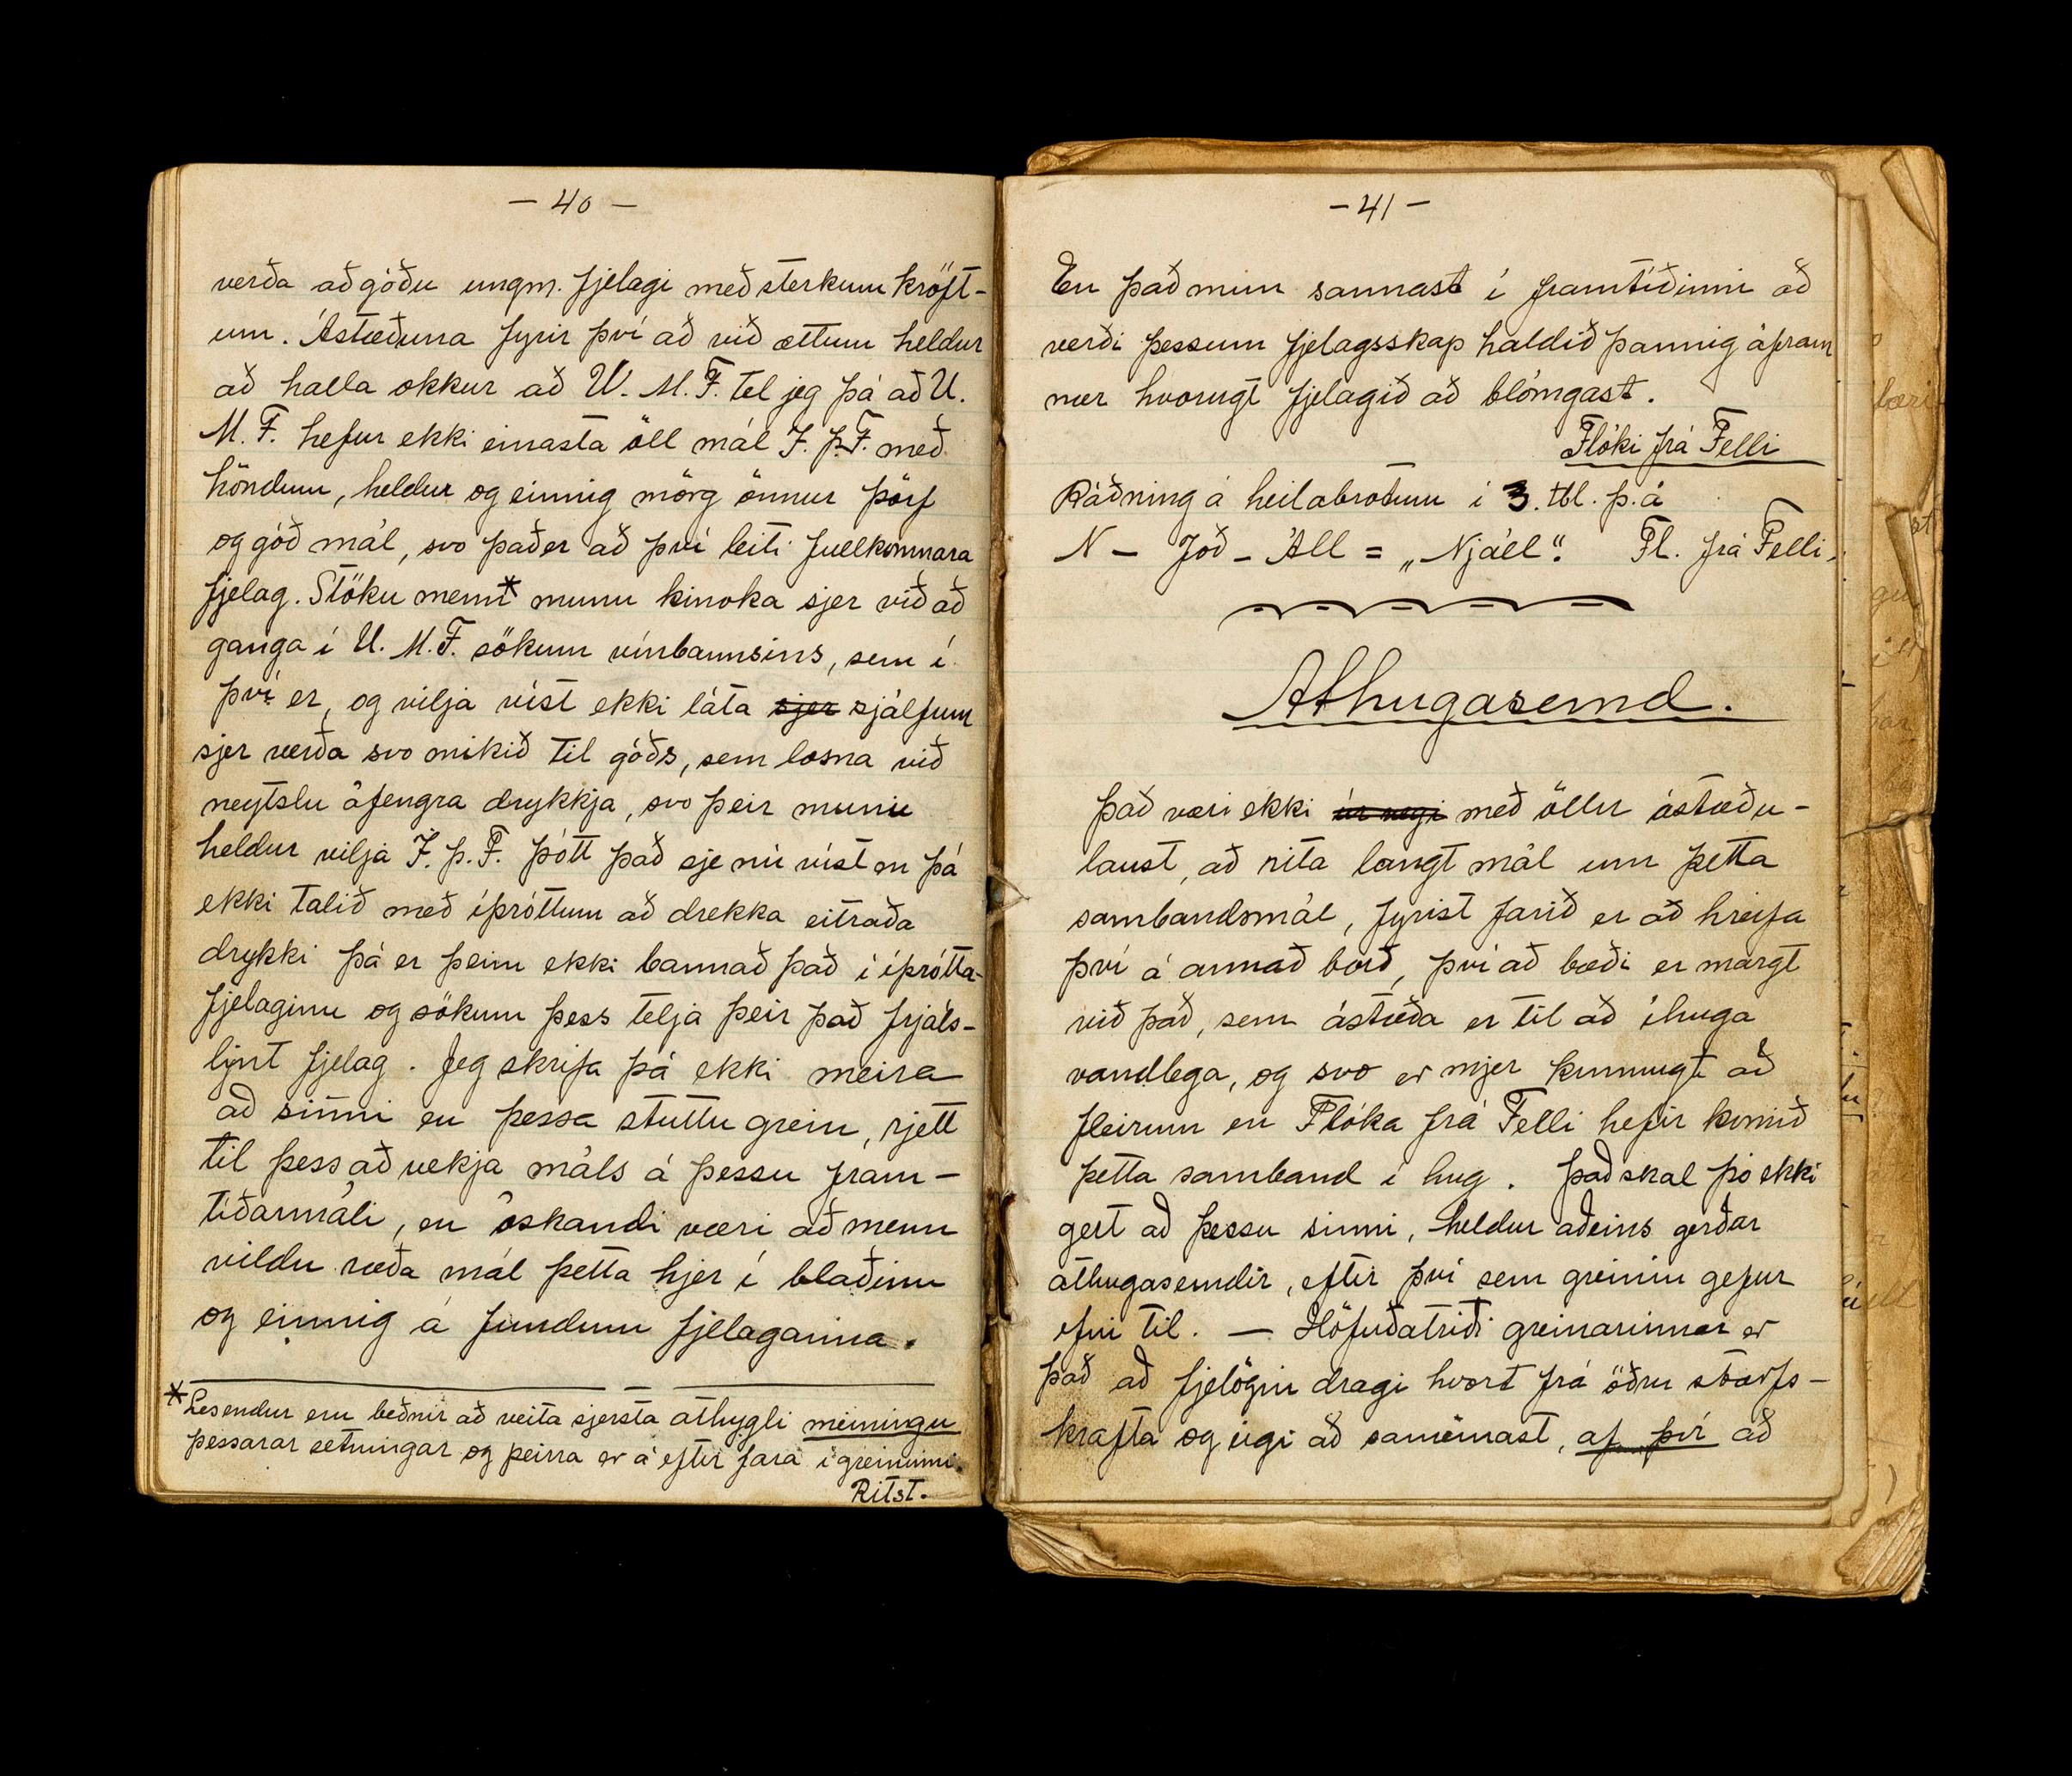 — 40 —
verða að góðu ungm. fjelagi með sterkum kröft-
um. Ástæðuna fyrir því að við ættum heldur
að halla okkur að U. M. F. tel jeg þá að U.
M. F. hefur ekki einasta öll mál Í. Þ. F. með
höndum, heldur og einnig mörg önnur þörf
og góð mál, svo það er að því leiti fuelkomnara
fjelag. Stöku menn* munu kinoka sjer við að
ganga í U. M. F. sökum vínbannsins, sem í
því er, og vilja víst ekki láta sjer sjálfum
sjer verða svo mikið til góðs, sem losna við
neytslu áfengra drykkja, svo þeir munu
heldur vilja Í. Þ. F. þótt það sje nú víst en þá
ekki talið með íþróttum að drekka eitraða
drykki þá er þeim ekki bannað það í íþrótta-
fjelaginu og sökum þess telja þeir það frjáls-
lynt fjelag. Jeg skrifa þá ekki meira
að sinni en þessa stuttu grein, rjett
til þess að vekja máls á þessu fram-
tíðarmáli, en óskandi væri að menn
vildu ræða mál þetta hjer í blaðinu
og einnig á fundum fjelaganna.
* Lesendur eru beðnir að veita sjersta athygli meiningu
þessarar setningar og þeirra er á eftir fara í greininni.
Ritst.
— 41 —
En það mun sannast í framtíðinni að
verði þessum fjelagsskap haldið þannig áfram
nær hvorugt fjelagið að blómgast.
Flóki frá Felli
Ráðning á heilabrotum í 3. tbl. þ. á
N — Joð — Áll = „Njáll“. Fl. frá Felli.
Athugasemd.
Það væri ekki úr vegi með öllu ástæðu-
laust, að rita langt mál um þetta
sambandsmál, fyrist farið er að hreifa
því á annað borð, því að bæði er margt
við það, sem ástæða er til að íhuga
vandlega, og svo er mjer kunnugt að
fleirum en Flóka frá Felli hefir komið
þetta samband í hug. Það skal þó ekki
gert að þessu sinni, heldur aðeins gerðar
athugasemdir, eftir því sem greinin gefur
efni til. — Höfuðatriði greinarinnar er
það að fjelögin dragi hvort frá öðru starfs-
krafta og eigi að sameinast, af því að